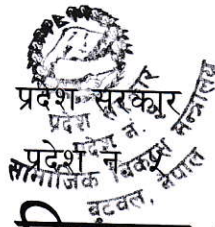 प्रदेश सरकार
प्रदेश नं. ५
प्रदेश सरकार
प्रदेश नं.
सामाजिक विकास मन्त्रालय
बुटवल, नेपाल